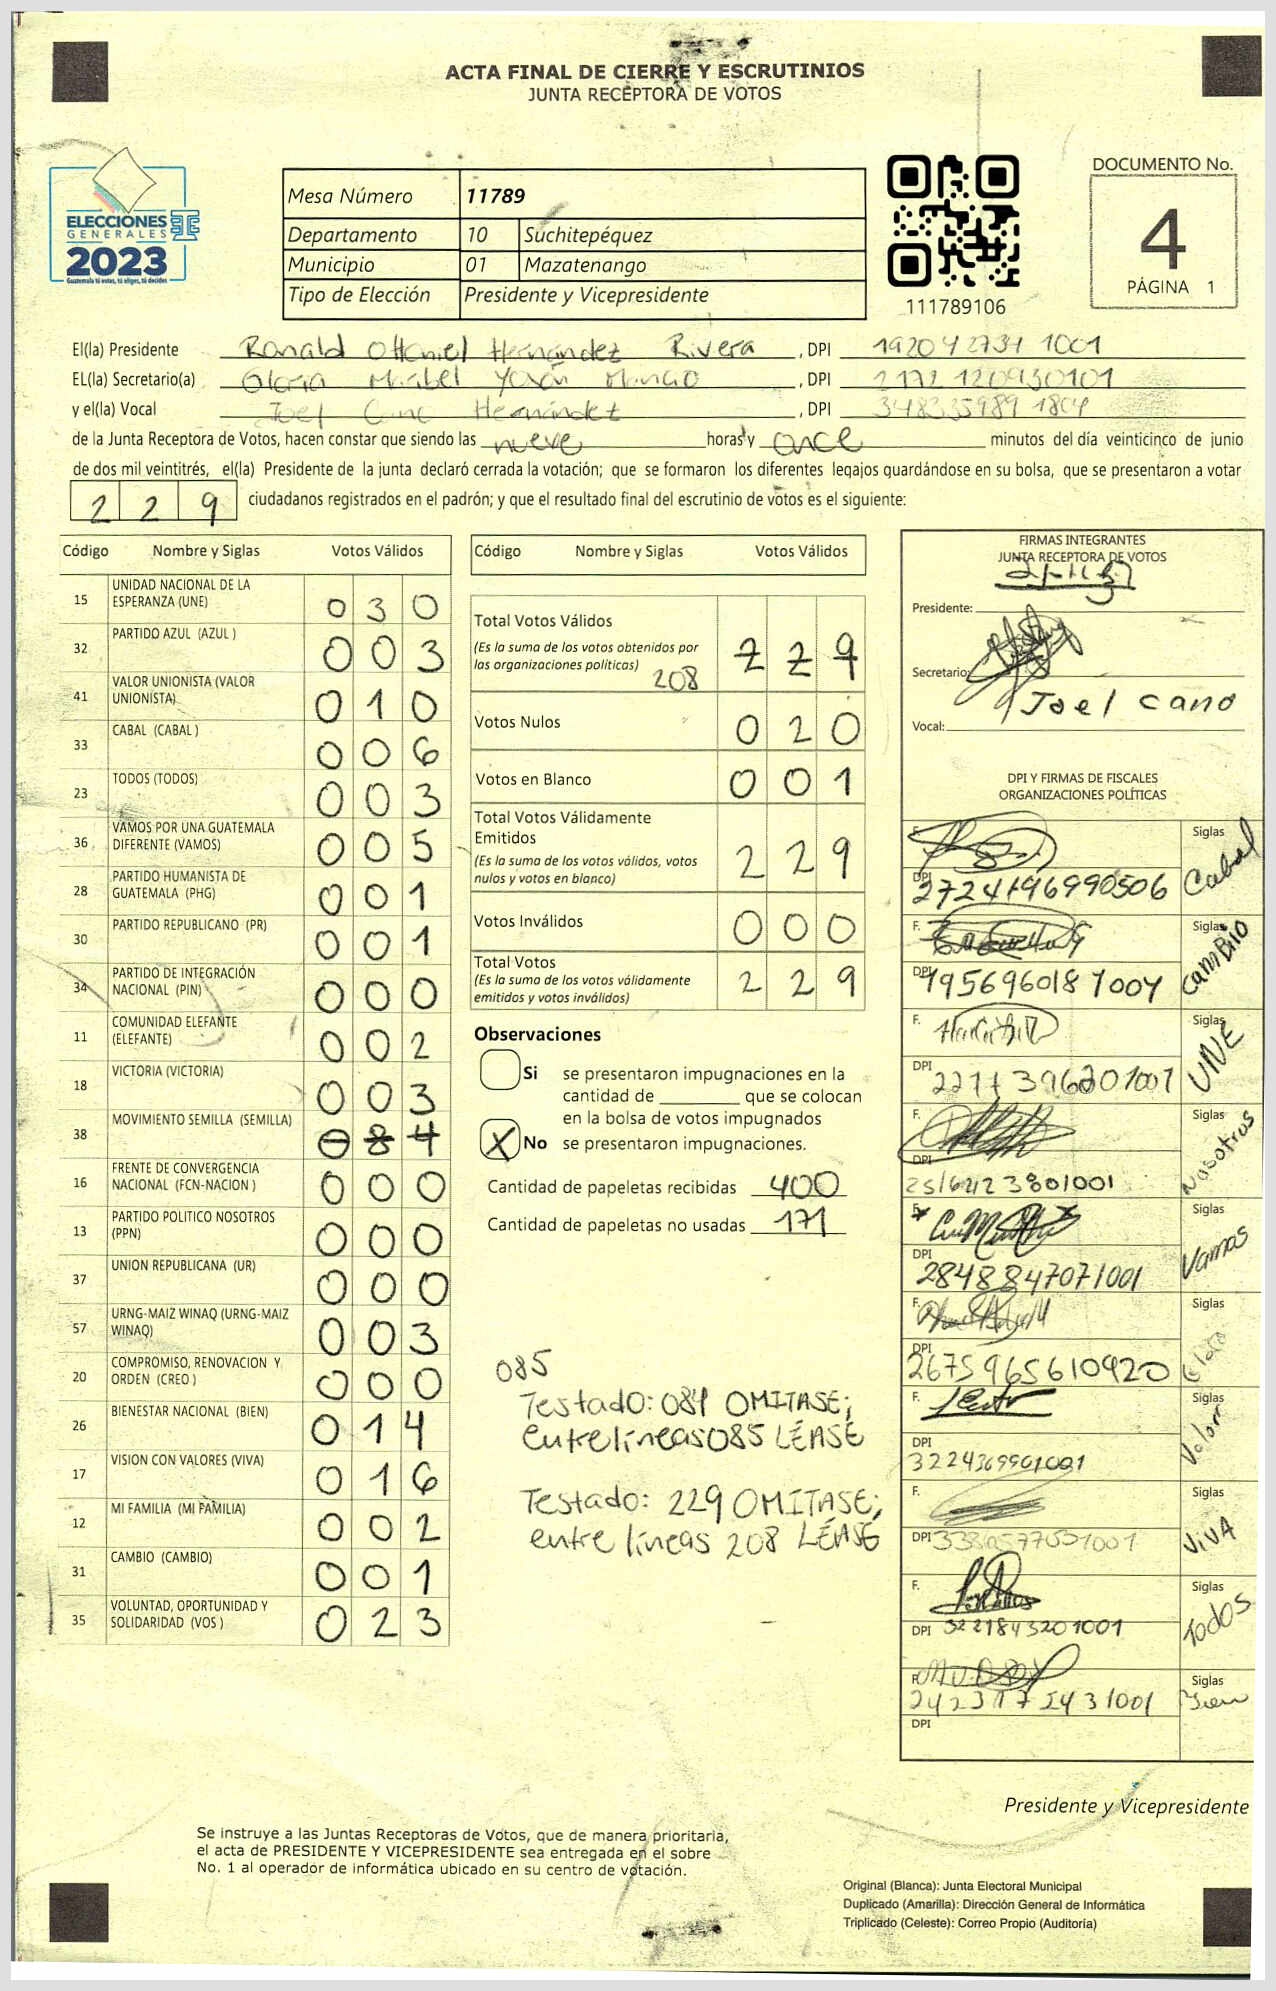 ACTA FINAL DE CIERRE Y ESCRUTINIOS
JUNTA RECEPTORA DE VOTOS
ELECCIONES
GENERALES
2023
Guatemala tú votas, tú eliges, tú decides
Mesa Número 11789
Departamento 10 Suchitepéquez
Municipio 01 Mazatenango
Tipo de Elección Presidente y Vicepresidente
111789106
DOCUMENTO No.
4
PÁGINA 1
El(la) Presidente Ronald Ottoniel Hernández Rivera, DPI 192042734 1001
EL(la) Secretario(a) Gloria Maribel, DPI 2172120930101
y el(la) Vocal Joel Cano Hernández, DPI 348335989 1804
de la Junta Receptora de Votos, hacen constar que siendo las nueve horas y once minutos del día veinticinco de junio
de dos mil veintitrés, el(la) Presidente de la junta declaró cerrada la votación; que se formaron los diferentes legajos guardándose en su bolsa, que se presentaron a votar
229 ciudadanos registrados en el padrón; y que el resultado final del escrutinio de votos es el siguiente:
Código Nombre y Siglas Votos Válidos
15 UNIDAD NACIONAL DE LA ESPERANZA (UNE) 030
32 PARTIDO AZUL (AZUL ) 003
41 VALOR UNIONISTA (VALOR UNIONISTA) 010
33 CABAL (CABAL ) 006
23 TODOS (TODOS) 003
36 VAMOS POR UNA GUATEMALA DIFERENTE (VAMOS) 005
28 PARTIDO HUMANISTA DE GUATEMALA (PHG) 001
30 PARTIDO REPUBLICANO (PR) 001
34 PARTIDO DE INTEGRACIÓN NACIONAL (PIN) 000
11 COMUNIDAD ELEFANTE (ELEFANTE) 002
18 VICTORIA (VICTORIA) 003
38 MOVIMIENTO SEMILLA (SEMILLA) 084
16 FRENTE DE CONVERGENCIA NACIONAL (FCN-NACION ) 000
13 PARTIDO POLITICO NOSOTROS (PPN) 000
37 UNION REPUBLICANA (UR) 000
57 URNG-MAIZ WINAQ (URNG-MAIZ WINAQ) 003
20 COMPROMISO, RENOVACION Y ORDEN (CREO ) 000
26 BIENESTAR NACIONAL (BIEN) 014
17 VISION CON VALORES (VIVA) 016
12 MI FAMILIA (MI FAMILIA) 002
31 CAMBIO (CAMBIO) 001
35 VOLUNTAD, OPORTUNIDAD Y SOLIDARIDAD (VOS ) 023
Código Nombre y Siglas Votos Válidos
Total Votos Válidos 229
(Es la suma de los votos obtenidos por
las organizaciones políticas)
208
Votos Nulos 020
Votos en Blanco 001
Total Votos Válidamente
Emitidos 229
(Es la suma de los votos válidos, votos
nulos y votos en blanco)
Votos Inválidos 000
Total Votos 229
(Es la suma de los votos válidamente
emitidos y votos inválidos)
Observaciones
Si se presentaron impugnaciones en la
cantidad de ________ que se colocan
en la bolsa de votos impugnados
X No se presentaron impugnaciones.
Cantidad de papeletas recibidas 400
Cantidad de papeletas no usadas 171
085
Testado: 084 OMITASE;
entrelíneas 085 LÉASE
Testado: 229 OMITASE;
entre líneas 208 LÉASE
FIRMAS INTEGRANTES
JUNTA RECEPTORA DE VOTOS
Presidente:
Secretario:
Joel Cano
Vocal:
DPI Y FIRMAS DE FISCALES
ORGANIZACIONES POLÍTICAS
F. Siglas Cabal
DPI 2724196990506
F. Siglas CAMBIO
DPI 1956960187004
F. Siglas UNE
DPI
F. Siglas Nosotros
DPI
F. Siglas Vamos
DPI 2848847071001
F. Siglas
DPI 2675965610920
F. Siglas Valor
DPI 3224369901001
F. Siglas VIVA
DPI
F. Siglas Todos
DPI 3221843201001
F. Siglas
DPI
Presidente y Vicepresidente
Se instruye a las Juntas Receptoras de Votos, que de manera prioritaria,
el acta de PRESIDENTE Y VICEPRESIDENTE sea entregada en el sobre
No. 1 al operador de informática ubicado en su centro de votación.
Original (Blanca): Junta Electoral Municipal
Duplicado (Amarilla): Dirección General de Informática
Triplicado (Celeste): Correo Propio (Auditoría)